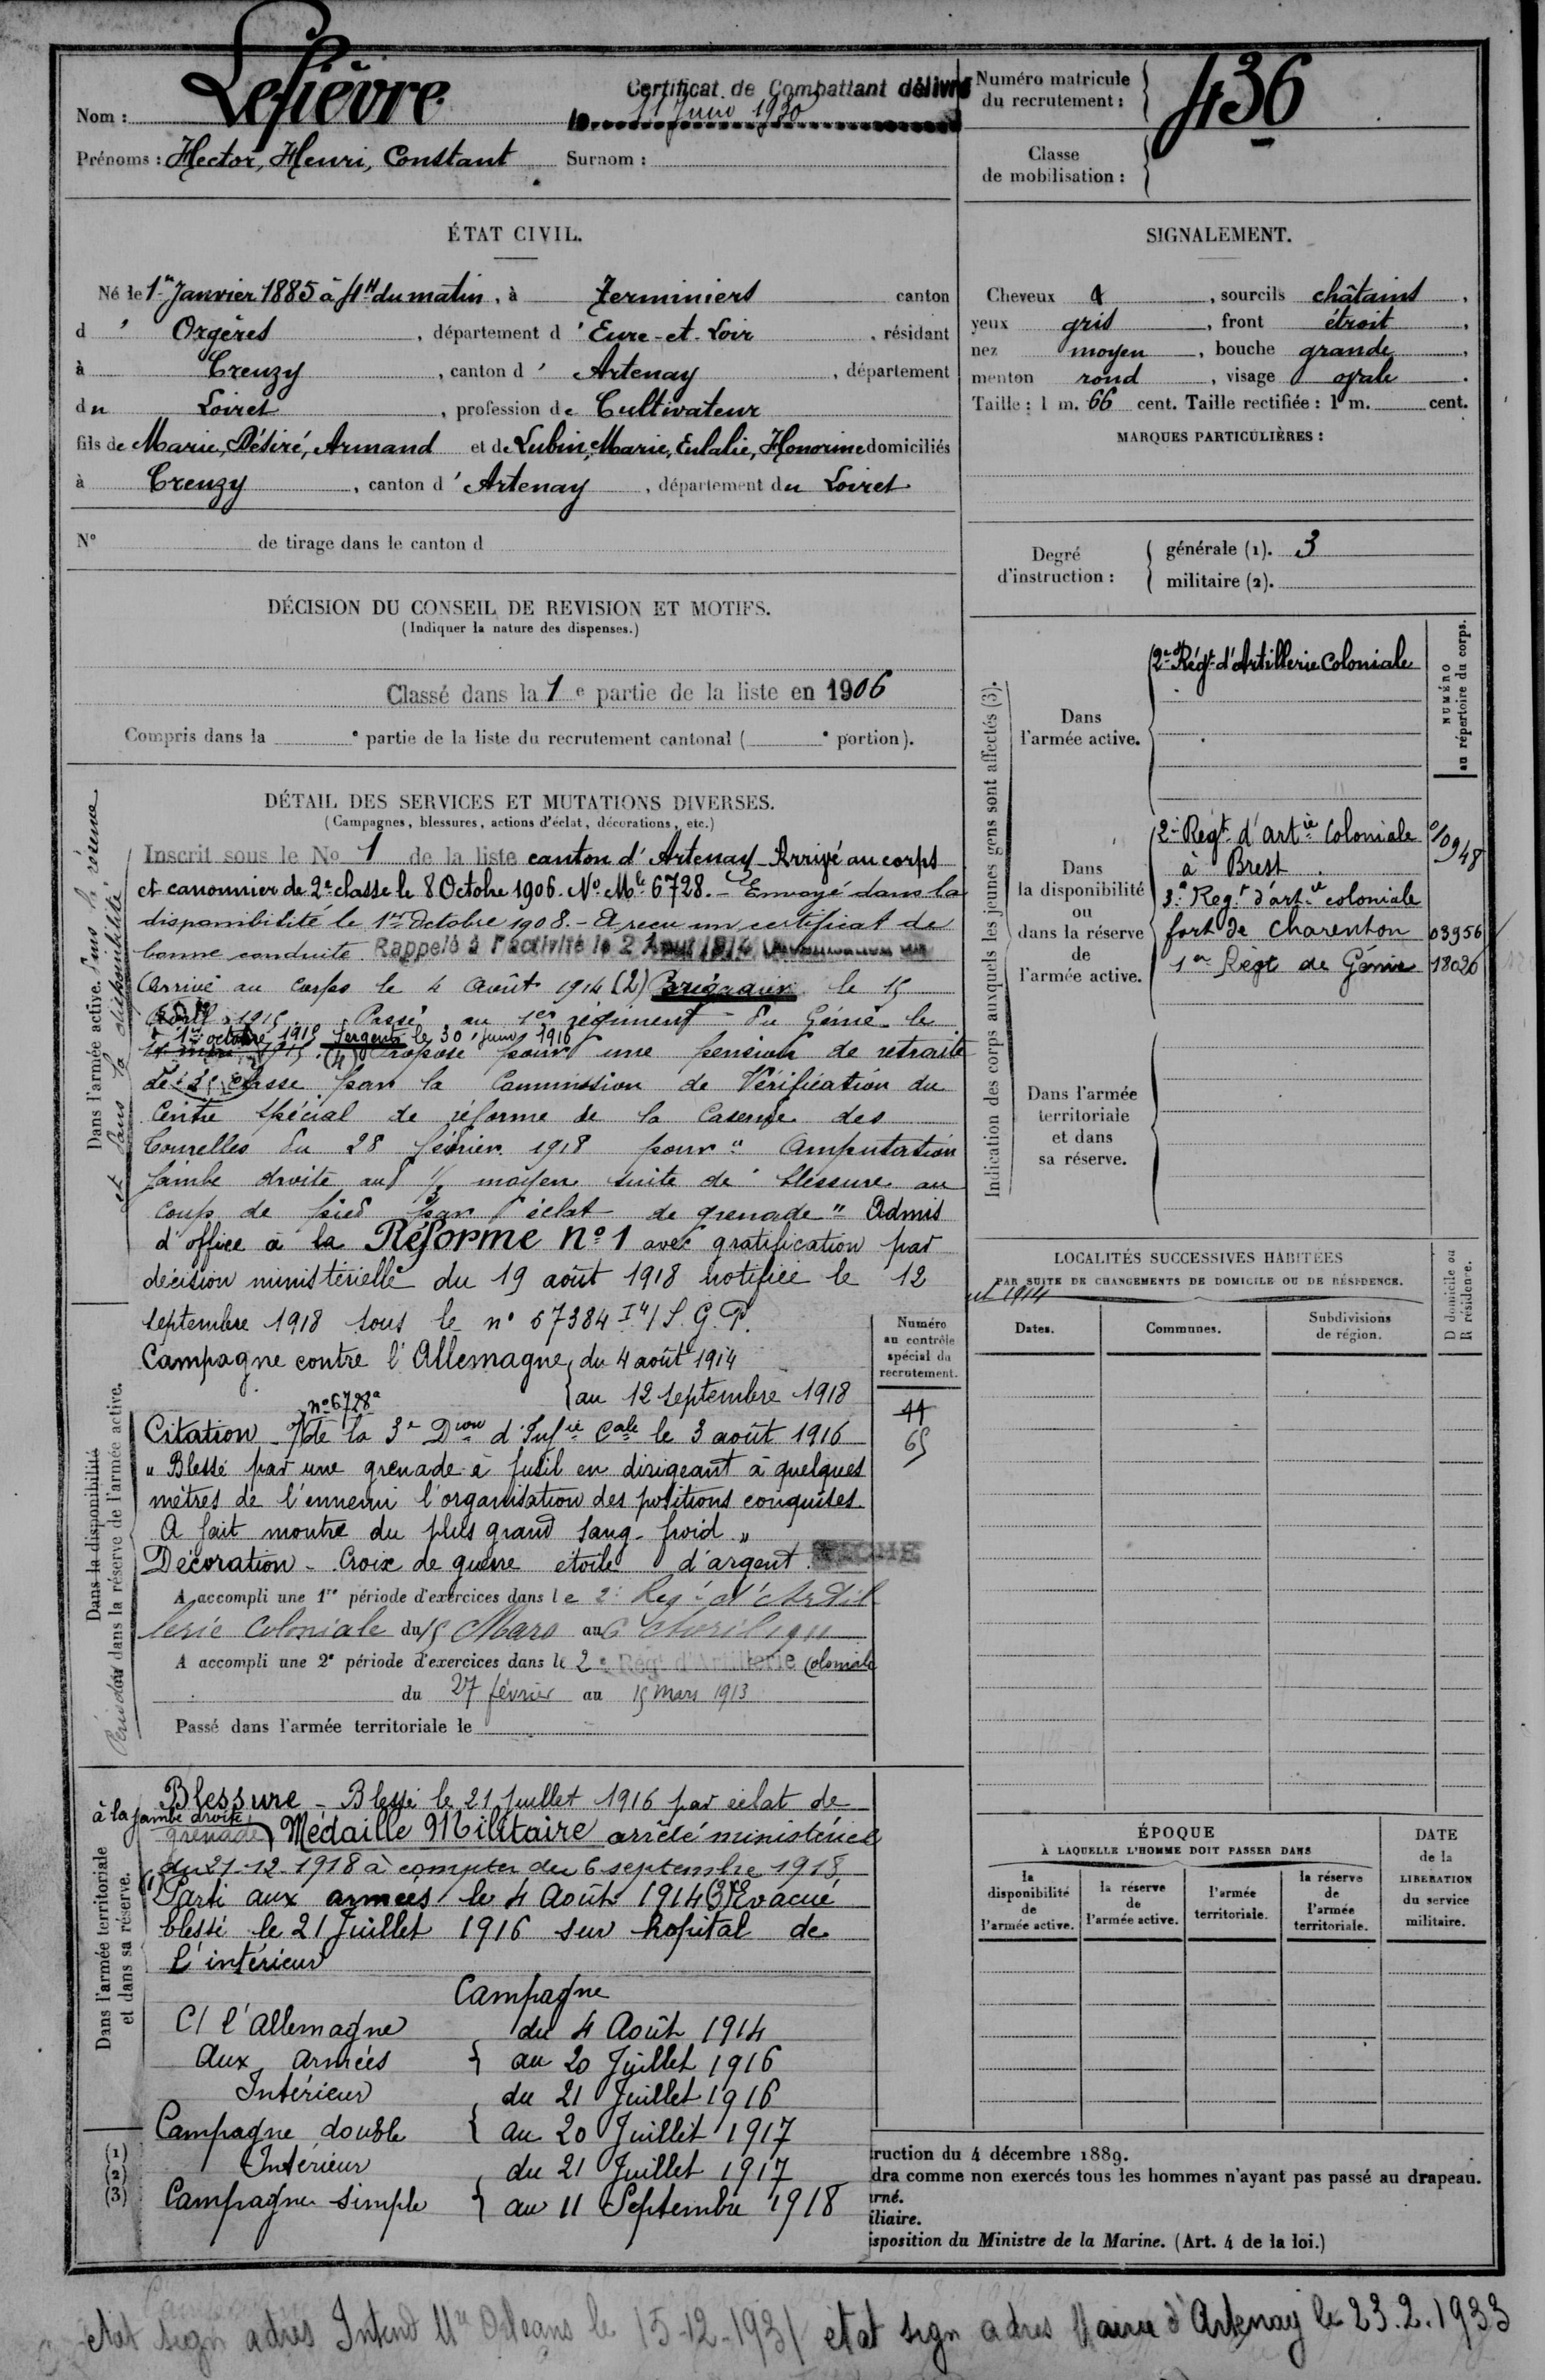 Nom : Lefièvre
Certificat de Combattant délivré
le 11 Juin 1930
Prénoms : Hector, Henri, Constant Surnom :
Numéro matricule
du recrutement :
436
Classe
de mobilisation :
ÉTAT CIVIL.
Né le 1er Janvier 1885 à 4h du matin, à Terminiers canton
d' Orgères, département d' Eure-et-Loir, résidant
à Creuzy, canton d' Artenay, département
du Loiret, profession de Cultivateur
fils de Marie, Désiré, Armand et de Lubin, Marie, Eulalie, Honorine domiciliés
à Creuzy, canton d' Artenay, département du Loiret
N° de tirage dans le canton d
SIGNALEMENT.
Cheveux &, sourcils châtains,
yeux gris, front étroit,
nez moyen, bouche grande,
menton rond, visage ovale.
Taille : 1 m. 66 cent. Taille rectifiée : 1 m. cent.
MARQUES PARTICULIÈRES :
Degré
d'instruction :
générale (1). 3
militaire (2).
DÉCISION DU CONSEIL DE REVISION ET MOTIFS.
(Indiquer la nature des dispenses.)
Classé dans la 1e partie de la liste en 1906
Compris dans la e partie de la liste du recrutement cantonal ( e portion).
DÉTAIL DES SERVICES ET MUTATIONS DIVERSES.
(Campagnes, blessures, actions d'éclat, décorations, etc.)
Dans l'armée active.
et dans la disponibilité
Inscrit sous le No 1 de la liste canton d'Artenay - Arrivé au corps
et canonnier de 2e classe le 8 Octobre 1906. No Mle 6728. - Envoyé dans la
disponibilité le 1er Octobre 1908. - A reçu un certificat de
bonne conduite. Rappelé à l'activité le 2 Aout 1914
Arrivé au Corps le 4 Août 1914 (2) Brigadier le 15
Avril 1915. Passé au 1er régiment du Génie le
1er octobre 1915 Sergent le 30 Juin 1916
(4) Proposé pour une pension de retraite
de classe par la Commission de Vérification du
Centre Spécial de réforme de la Caserne des
Tourelles du 28 février 1918 pour " Amputation
jambe droite au 1/3 moyen suite de blessure au
coup de pied par éclat de grenade " Admis
d'office à la Réforme No 1 avec gratification par
décision ministérielle du 19 août 1918 notifiée le 12
septembre 1918 sous le no 67384 I4/S.G.P.
Campagne contre l'Allemagne, du 4 août 1914
au 12 septembre 1918
no 6728a
Citation / de la 3e Dion d'Infie Cale le 3 août 1916
" Blessé par une grenade à fusil en dirigeant à quelques
mètres de l'ennemi l'organisation des positions conquises.
A fait montre du plus grand sang-froid "
Décoration - Croix de guerre étoile d'argent.
A accompli une 1re période d'exercices dans le 2e Regt d'Artil
lerie Coloniale du 15 Mars au 6 Avril 1911
A accompli une 2e période d'exercices dans le 2e Régt d'Artillerie Coloniale
du 27 février au 15 mars 1913
Passé dans l'armée territoriale le
Dans la disponibilité
dans la réserve de l'armée active.
Numéro
au contrôle
spécial du
recrutement.
44
65
Dans l'armée territoriale
et dans sa réserve.
Blessure - Blessé le 21 Juillet 1916 par éclat de
à la jambe droite
grenade Médaille Militaire arrêté ministériel
du 21-12-1918 à compter du 6 septembre 1918
(1) Parti aux armées le 4 Août 1914 (3) Evacué
blessé le 21 Juillet 1916 sur hopital de
l'intérieur
Campagne
C/ l'Allemagne du 4 Août 1914
aux armées au 20 Juillet 1916
Intérieur du 21 Juillet 1916
Campagne double au 20 Juillet 1917
Intérieur du 21 Juillet 1917
Campagne simple au 11 Septembre 1918
(1)
(2)
(3)
Indication des corps auxquels les jeunes gens sont affectés (3).
NUMÉRO
au répertoire du corps.
Dans
l'armée active.
2e Régt d'Artillerie Coloniale
Dans
la disponibilité
ou
dans la réserve
de
l'armée active.
2e Regt d'artie Coloniale
à Brest
0/0948
3e Regt d'artie coloniale
fort de Charenton 03956
1er Régt de Génie 18026
Dans l'armée
territoriale
et dans
sa réserve.
LOCALITÉS SUCCESSIVES HABITÉES
PAR SUITE DE CHANGEMENTS DE DOMICILE OU DE RÉSIDENCE.
1914
Dates. Communes. Subdivisions
de région.
D domicile ou
R résidence.
ÉPOQUE
À LAQUELLE L'HOMME DOIT PASSER DANS
la
disponibilité
de
l'armée active.
la réserve
de
l'armée active.
l'armée
territoriale.
la réserve
de
l'armée
territoriale.
DATE
de la
LIBERATION
du service
militaire.
ruction du 4 décembre 1889.
dra comme non exercés tous les hommes n'ayant pas passé au drapeau.
rné.
iliaire.
isposition du Ministre de la Marine. (Art. 4 de la loi.)
etat sign adres Intend Mre Orléans le 15-12-1931 etat sign adres Mairie d'Artenay le 23.2.1933